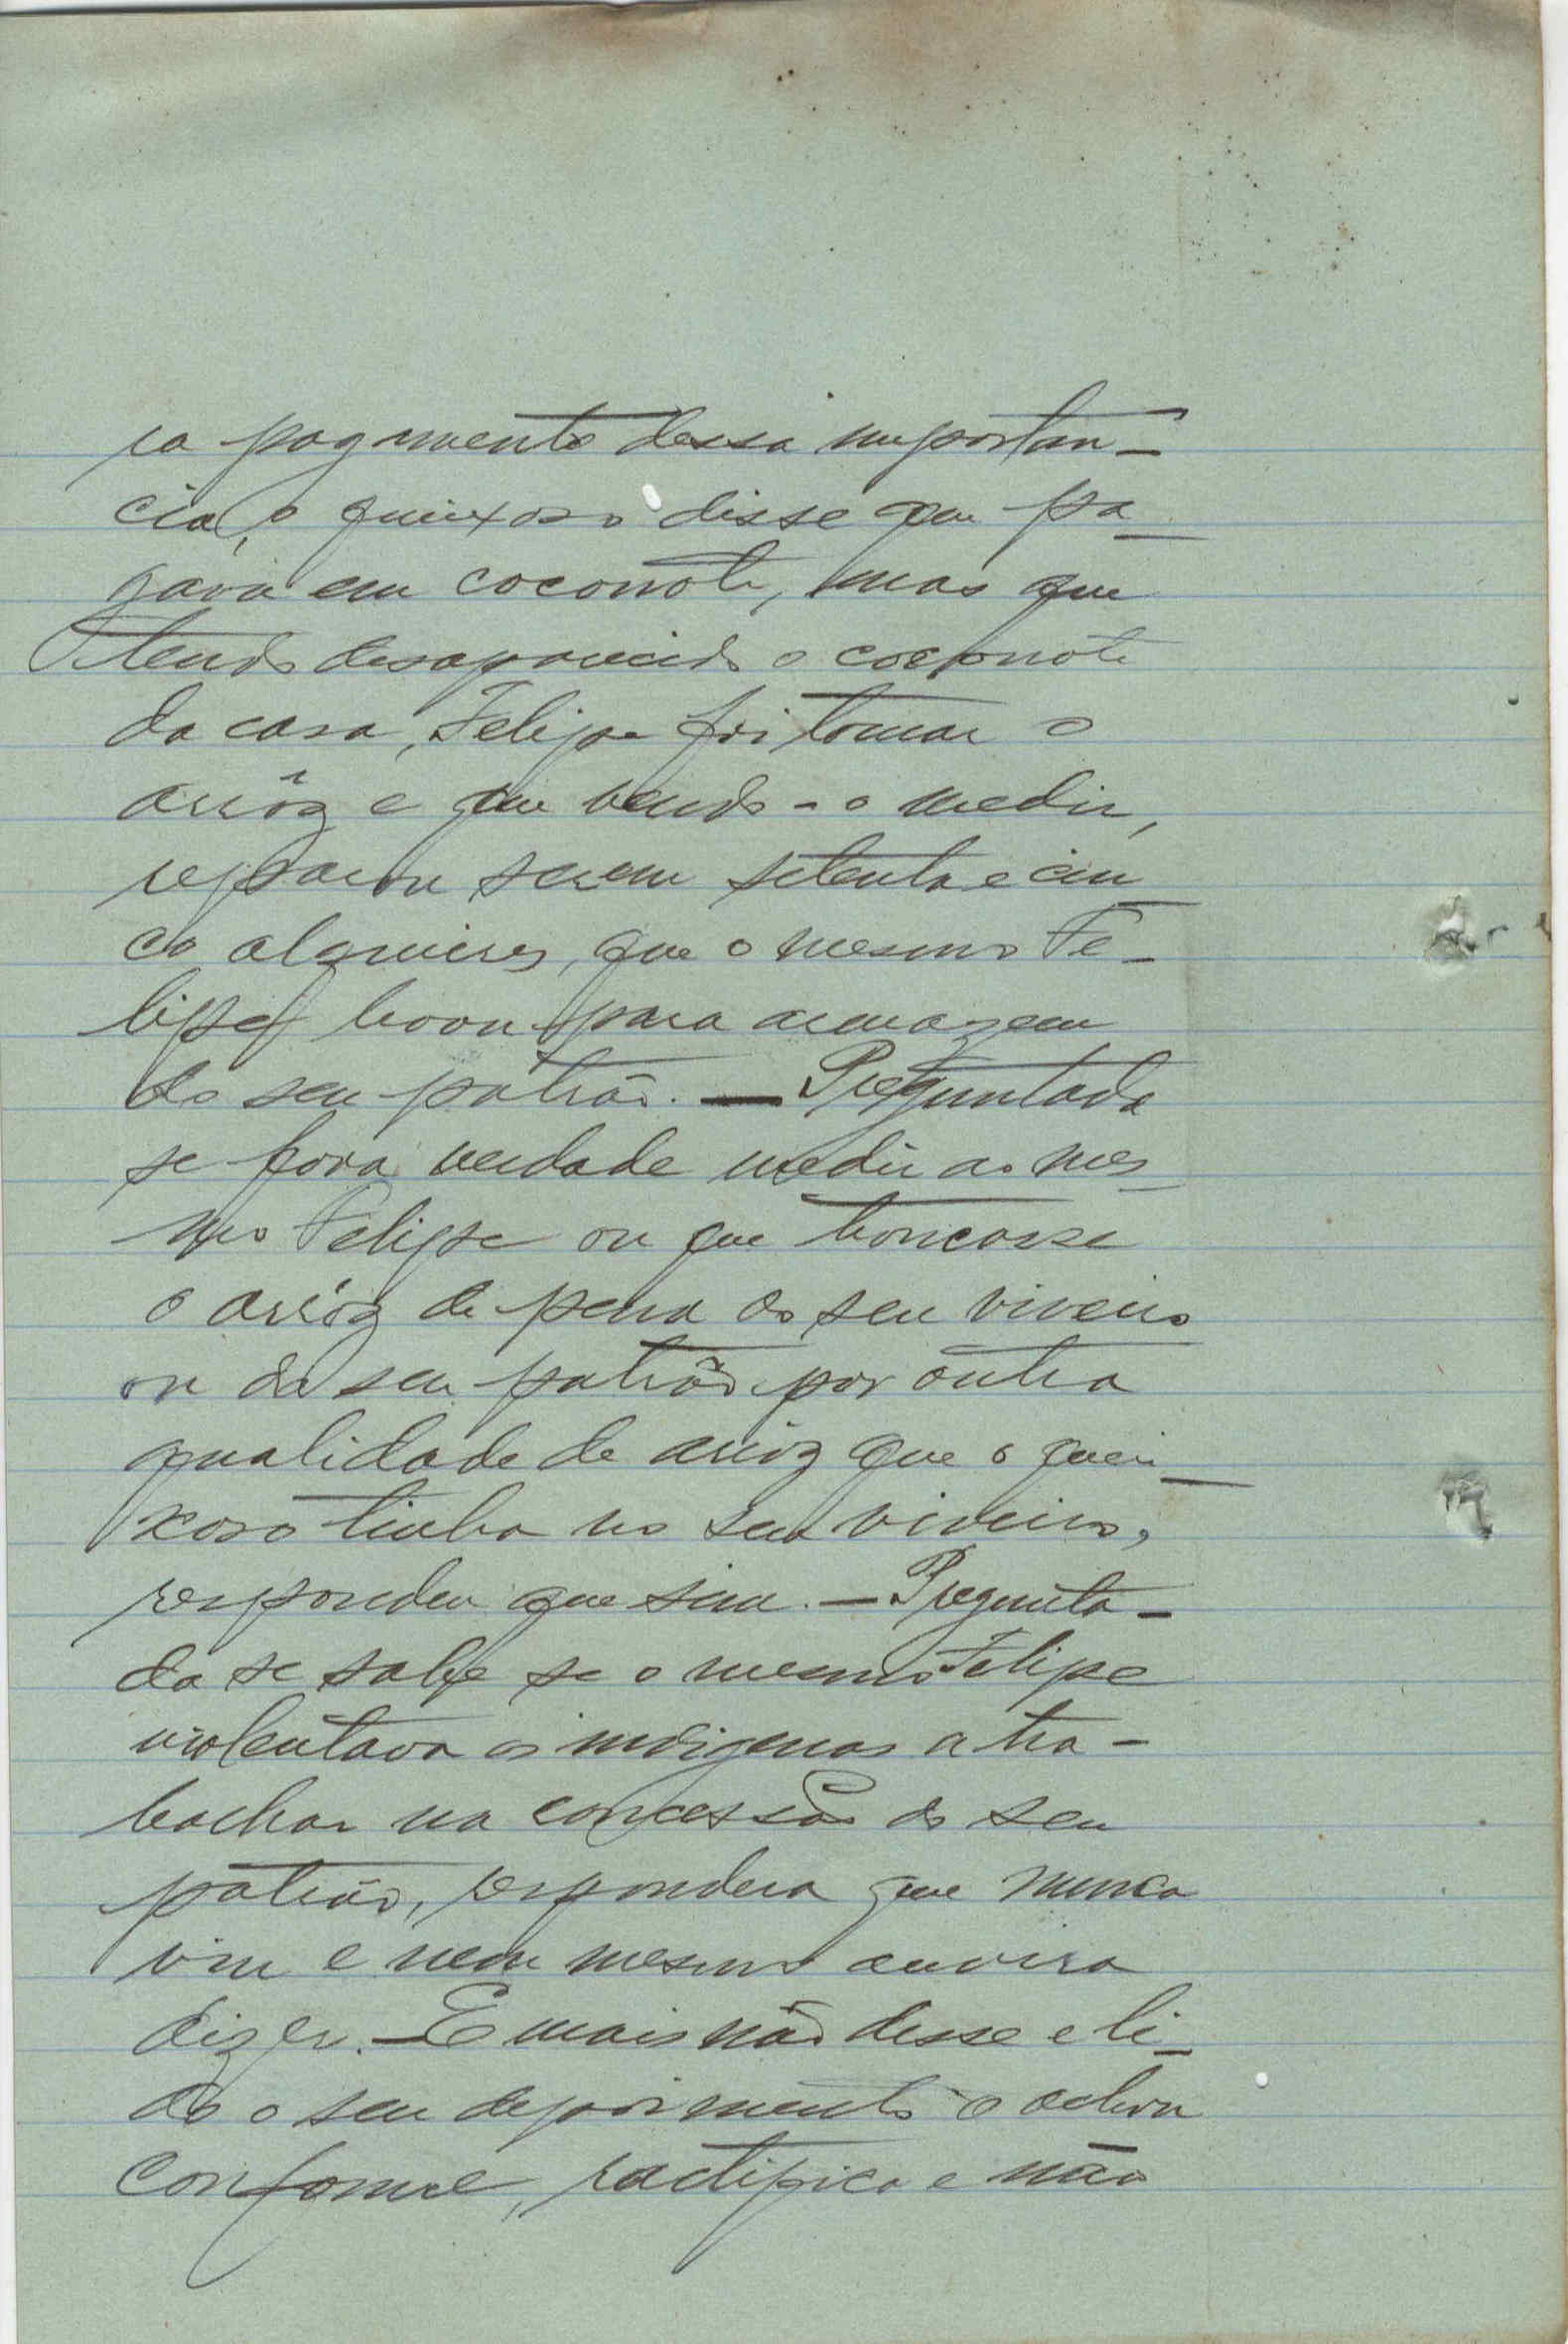 ra pagamento dessa importan-
cia, o queixoso disse que pa-
gava em coconote, mas que
tendo desaparecido o coconote
da casa, Felipe foi tomar o
arrôz e que vendo-o medir,
reparou serem setenta e cin-
co alqueires, que o mesmo Fe-
lipe levou para armazem
do seu patrão. — Preguntada
se fora verdade medir ao mes-
mo Felipe ou que trocasse
o arrôz de pena do seu viveiro
ou do seu patrão por outra
qualidade de arrôz que o quei-
xoso tinha no seu viveiro,
respondeu que sim. — Pregunta-
da se sabe se o mesmo Felipe
violentava os indigenas a tra-
balhar na concessão do seu
patrão, respondera que nunca
viu e nem mesmo ouvira
dizer. — E mais não disse e li-
do o seu depoimento o achou
conforme, ractifica e não